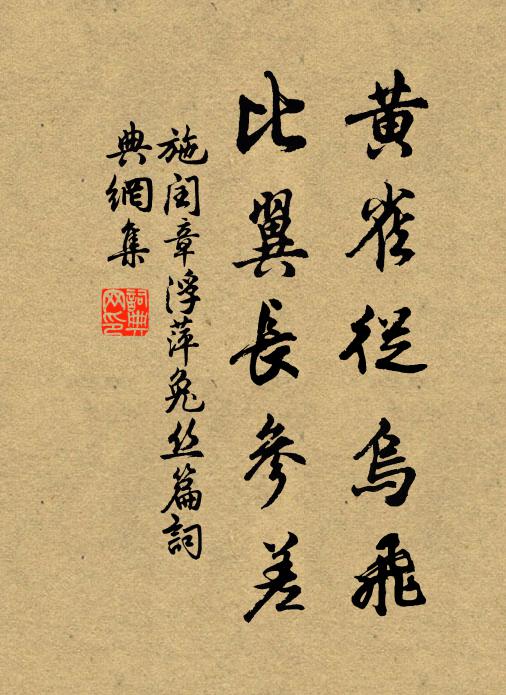 黃雀從烏飛
比翼長參差
施閏章浮萍兔丝篇詞
典網集
詞典
网印